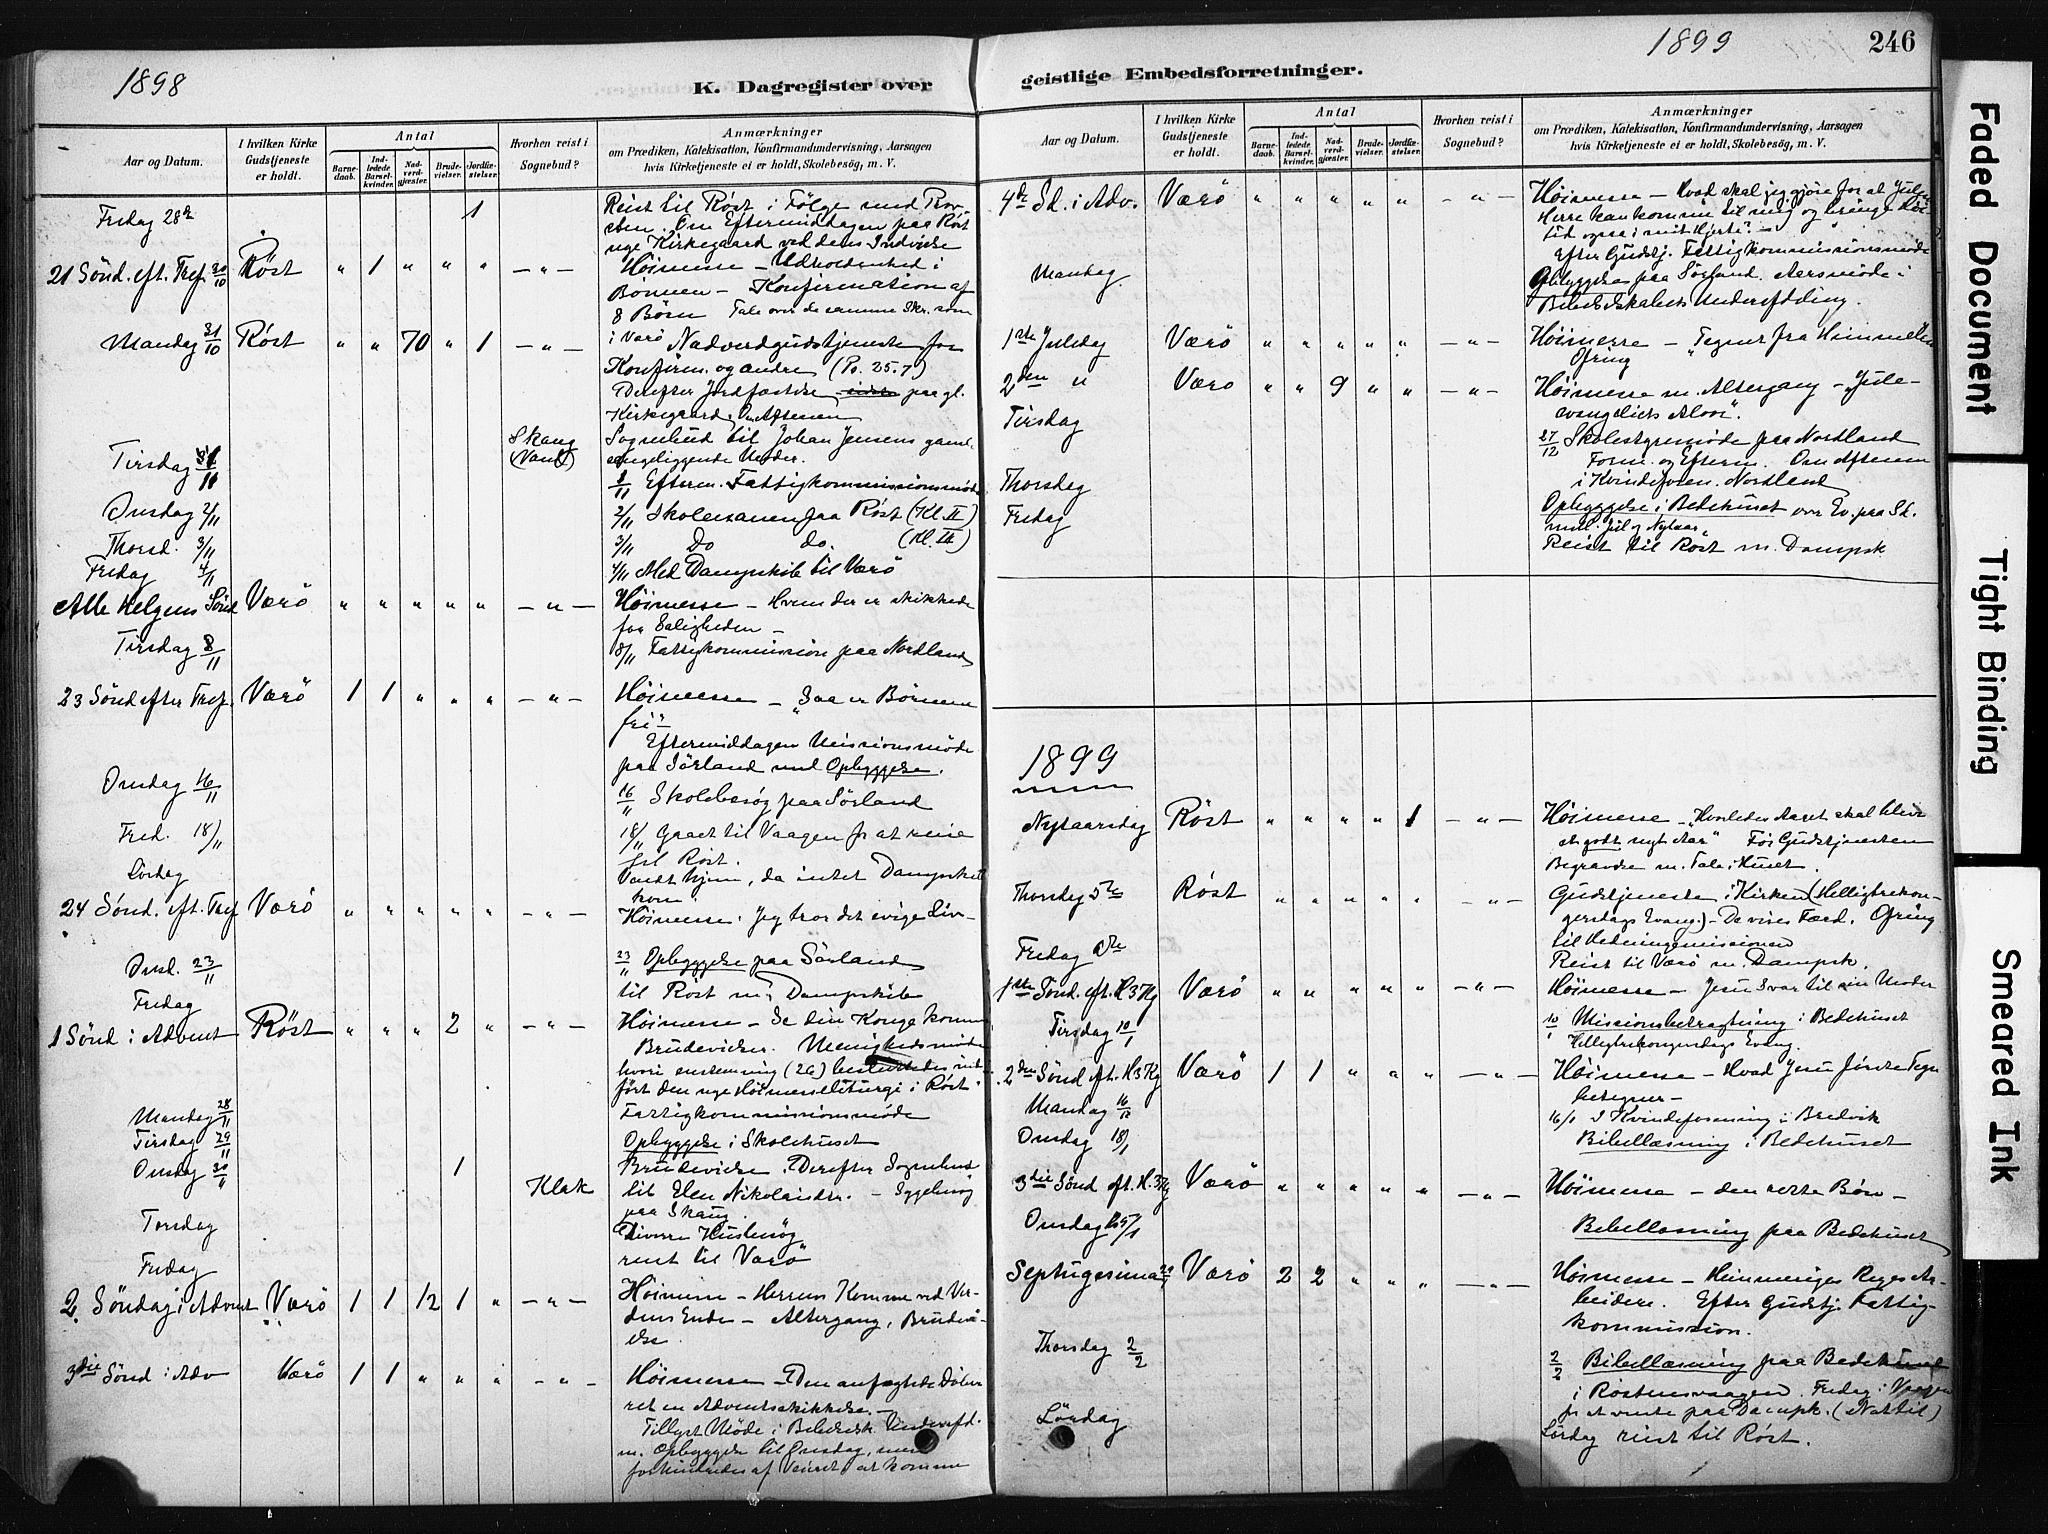 1898
K. Dagregister over
Aar og Datum.
I hvilken Kirke Gudstjeneste er holdt.
Antal
Barnedaab.
Indledede Barselkvinder.
Nadverdgjæster.
Brudevielser.
Jordfæstelser.
Hvorhen reist i Sognebud?
Anmærkninger
om Prædiken, Katekisation, Konfirmandundervisning, Aarsagen
hvis Kirketjeneste ei er holdt, Skolebesög, m. V.
Fredag 28de 1 Reist til Röst i Følge med Prov-
sten. Om Eftermiddagen paa Röst
nye Kirkegaard ved dens Indvielse
21 Sönd. eft. Tref. 30/10 Röst " 1 " " " — " — Höimesse – Udholdenhed i
Bönnen – Konfirmation af
8 Börn Tale over de samme Skr. som
Mandag 31/10 Röst " " 70 " 1 — " — i Værö Nadverdgudstjeneste for
Konfirm. og andre (Ps. 25.7)
Derefter Jordfæstelse paa gl.
Kirkegaard. Om Aftenen
Skang (Vand) Sognebud til Johan Jensens gamle
Tirsdag 1/11 sengeliggende Moder.
1/11 Efterm. Fattigkommissionsmöde
Onsdag 2/11 2/11 Skoleexamen paa Röst (Kl. II)
Thorsd. 3/11 3/11 Do do. (Kl. III)
Fredag 4/11 4/11 Med Dampskib til Værö
Alle Helgens Sönd Værö " " " " " — " — Höimesse – Hvem der er skikkede
for Saligheden –
Tirsdag 8/11 8/11 Fattigkommission paa Nordland
23 Sönd efter Tref. Værö 1 1 " " " — " — Höimesse – "Saa er Börnene
fri"
Eftermiddagen Missionsmöde
paa Sörland med Opbyggelse.
Onsdag 16/11 16/11 Skolebesög paa Sörland
Fred. 18/11 18/11 Gaaet til Vaagen for at reise
til Röst.
Lördag Vendt hjem, da intet Dampskib
kom.
24 Sönd. eft. Tref Værö " " " " " — " — Höimesse. Jeg tror det evige Liv –
Onsd. 23/11 23/11 Opbyggelse paa Sörland
Fredag til Röst m. Dampskib
1 Sönd i Advent Röst " " " 2 " — " — Höimesse – Se din Konge kommer
Brudevielser. Menighedsmöde
hvori enstemmig (26) besluttedes ind-
fört den nye Höimesseliturgi i Röst.
Mandag 28/11 Fattigkommissionsmöde
Tirsdag 29/11 Opbyggelse i Skolehuset
Onsdag 30/11 1 Brudevielse. Derefter Sognebud
Klak til Elen Nikolaidsr. – Sygebesög
paa Skaug.
Torsdag Diverse Husbesög
Fredag reist til Værö
2. Söndag i Advent Værö 1 1 12 1 " — " — Höimesse – Herrens Komme ved Ver-
dens Ende – Altergang, Brudevi-
else.
3die Sönd i Adv Værö 1 1 " " " — " — Höimesse – Den anfegtede Döber
ret en Adventsskikkelse. –
Tillyst Möde i Bibelsk Underafd.
m. Opbyggelse til Onsdag, men
forhindredes af Veiret at komme
1899
246
geistlige Embedsforretninger.
Aar og Datum.
I hvilken Kirke Gudstjeneste er holdt.
Antal
Barnedaab.
Indledede Barselkvinder.
Nadverdgjæster.
Brudevielser.
Jordfæstelser.
Hvorhen reist i Sognebud?
Anmærkninger
om Prædiken, Katekisation, Konfirmandundervisning, Aarsagen
hvis Kirketjeneste ei er holdt, Skolebesög, m. V.
4de Sd. i Adv. Værö " " " " " — " — Höimesse – Hvad skal jeg gjöre for at Julens
Herre kan komme til mig og bringe Höi-
tid ogsaa i mit Hjerte" –
Efter Gudstj. Fattigkommissionsmöde
Mandag Opbyggelse paa Sörland. Aarsmöde i
Bibelselskabets Underafdeling.
1ste Juledag Værö " " " " " — " — Höimesse – Tegnet fra Himmelen
Ofring
2den " Værö " " 9 " " — " — Höimesse m. Altergang – "Jule-
evangeliets Alvor".
Tirsdag 27/12 Skolestyremöde paa Nordland
Form. og Efterm. Om Aftenen
Thorsdag i Kvindeforen. Nordland
Fredag Opbyggelse i Bedehuset over Ev. paa Sd.
mell. Jul og Nytaar.
Reist til Röst m. Dampsk.
1899
Nytaarsdag Röst " " " " 1 — " — Höimesse – "Hvorledes Aaret skal blive
et godt nyt Aar" För Gudstjenesten
Begravelse m. Tale i Huset.
Thorsdag 5te Röst " " " " " — " — Gudstjeneste i Kirken (Helligtrekon-
gersdags Evang.) – De vises Færd. Ofring
til Hedningemissionen
Fredag 6te Reist til Værö m. Dampsk.
1ste Sönd. eft. H3Kg Værö " " " " " — " — Höimesse – Jesu Svar til sin Moder
Tirsdag 10/1 10/1 Missionsbetragtning i Bedehuset
Helligtrekongersdags Evang.
2den Sönd eft. H3Kg Værö 1 1 " " " — " — Höimesse – Hvad Jesu förste Tegn
betegner –
Mandag 16/1 16/1 I Kvindeforening i Bredvik
Onsdag 18/1 Bibellæsning i Bedehuset
3die Sönd eft. H.3Kg Værö " " " " " — " — Höimesse – den rette Bön –
Onsdag 25/1 Bibellæsning paa Bedehuset
Septugesima 29/1 Værö 2 2 " " " — " — Höimesse – Himmeriges Riges Ar-
beidere. Efter Gudstj. Fattig-
kommission.
Thorsdag 2/2 2/2 Bibellæsning paa Bedehuset
i Röstnesvaagen. Fredag i Vaagen
for at vente paa Dampsk. (Nattid)
Lördag Lördag reist til Röst.
Faded Document
Tight Binding
Smeared Ink